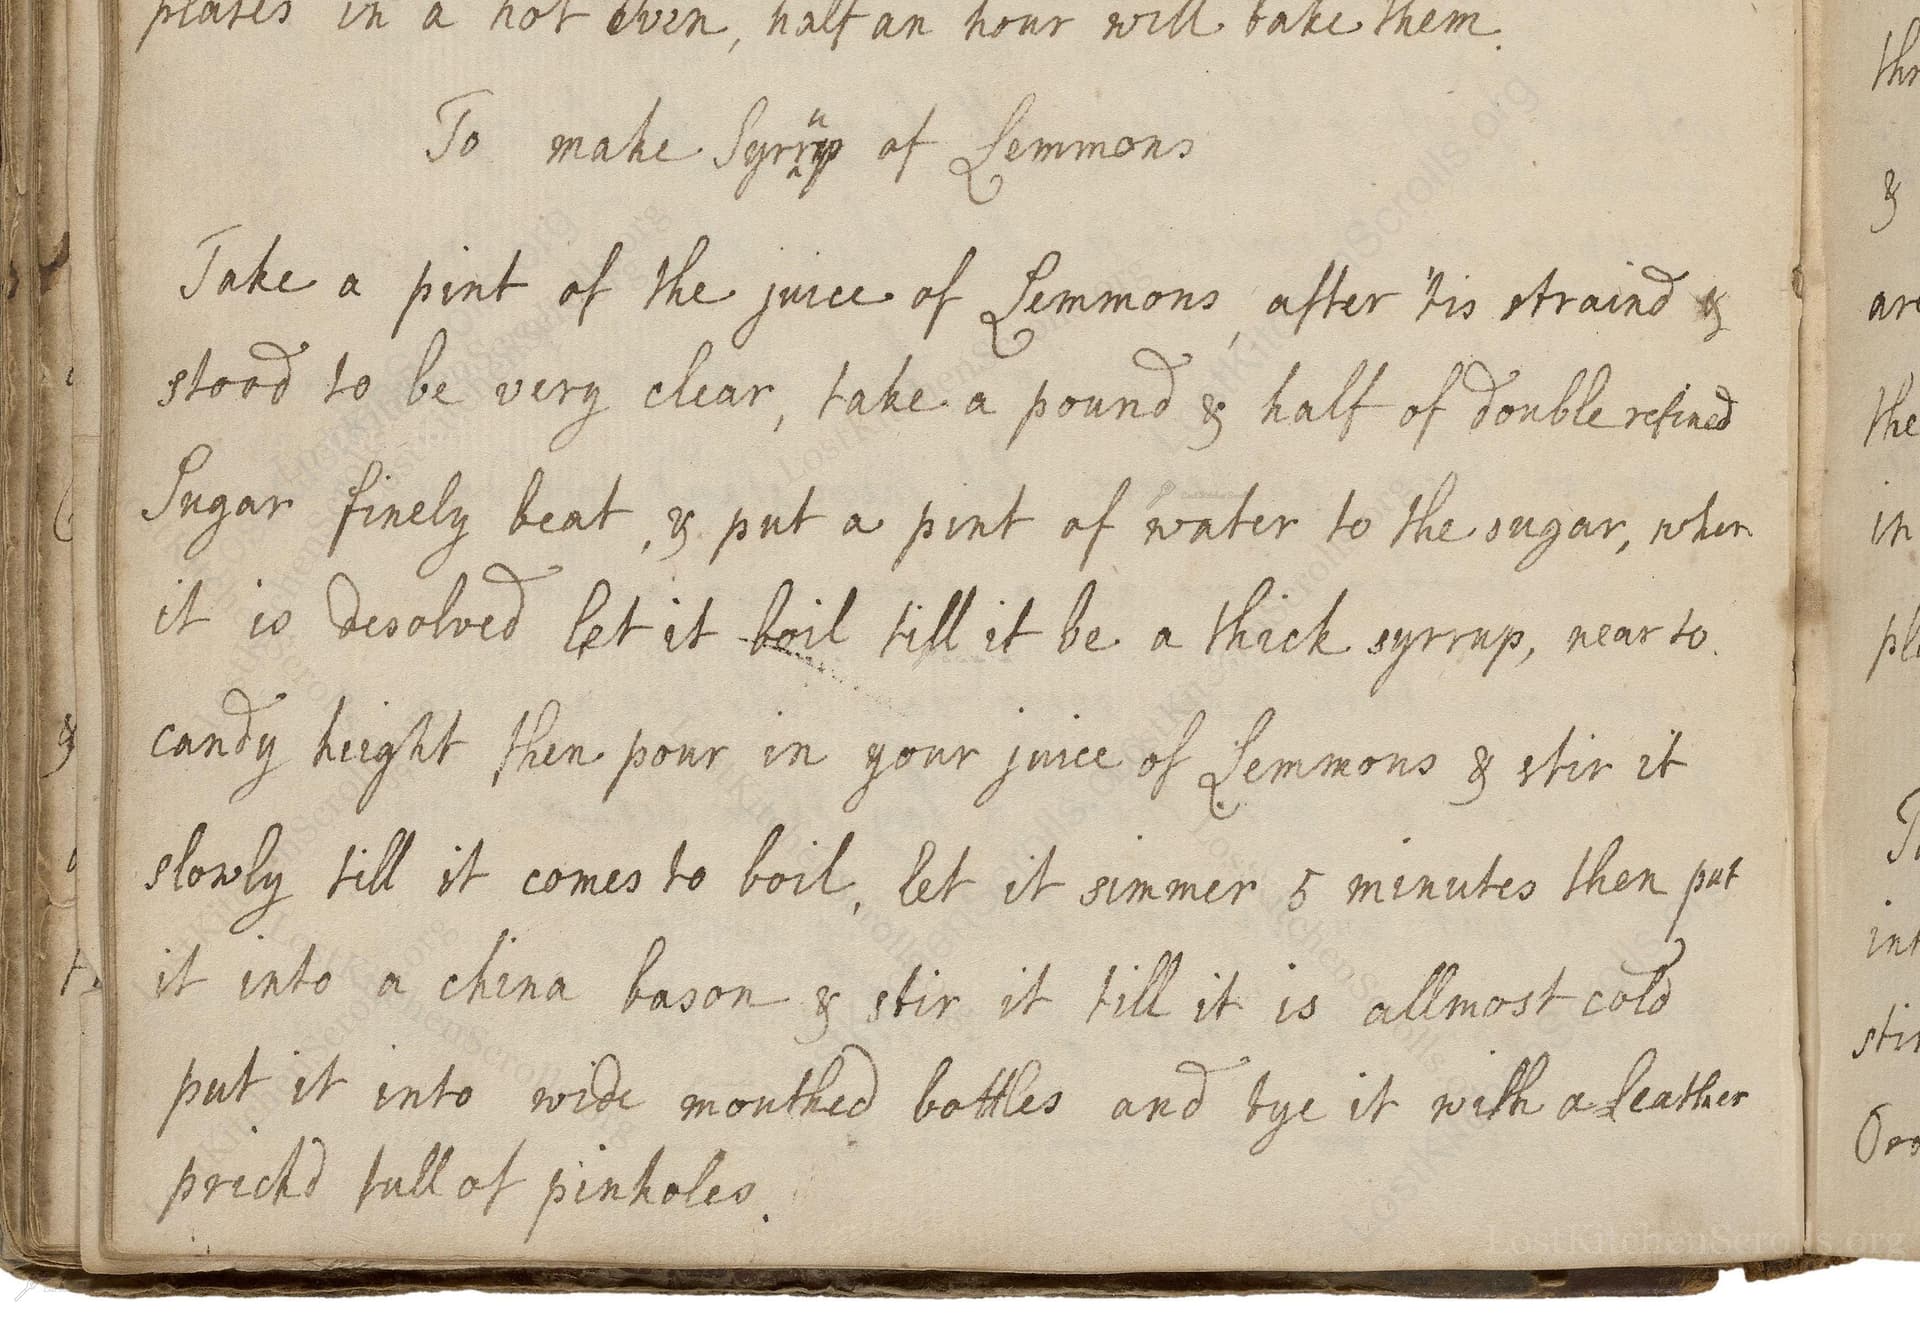 plates in a hot oven, half an hour will bake them.
To make Syrrup of Lemmons
Take a pint of the juice of Lemmons, after 'tis straind &
stood to be very clear, take a pound & half of double refined
Sugar finely beat, & put a pint of water to the sugar, when
it is desolved let it boil till it be a thick syrrup, near to
candy height then pour in your juice of Lemmons & stir it
slowly till it comes to boil, let it simmer 5 minutes then put
it into a china bason & stir it till it is allmost cold
put it into wide mouthed bottles and tye it with a leather
prickd full of pinholes.
&
are
the
in
stir
LostKitchenScrolls.org